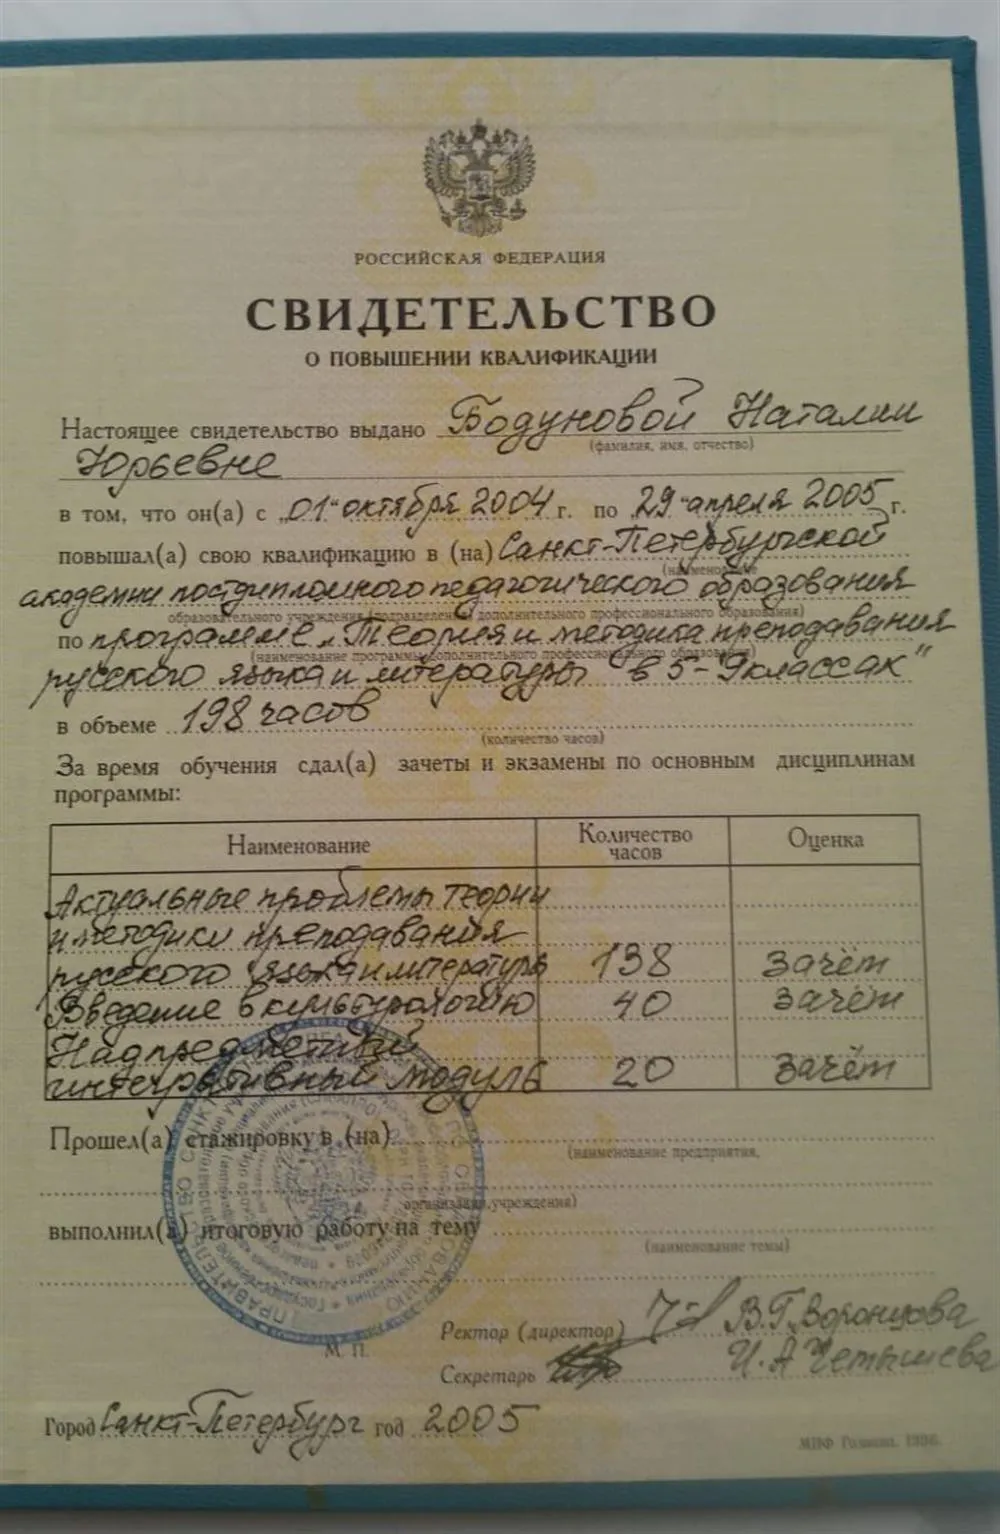 РОССИЙСКАЯ ФЕДЕРАЦИЯ
СВИДЕТЕЛЬСТВО
О ПОВЫШЕНИИ КВАЛИФИКАЦИИ
Настоящее свидетельство выдано Бодуновой Наталии
(фамилия, имя, отчество)
Юрьевне
в том, что он(а) с „01" октября 2004 г. по „29" апреля 2005 г.
повышал(а) свою квалификацию в (на) Санкт-Петербургской
(наименование
академии постдипломного педагогического образования
образовательного учреждения (подразделения) дополнительного профессионального образования)
по программе „Теория и методика преподавания
(наименование программы дополнительного профессионального образования)
русского языка и литературы в 5-9 классах"
в объеме 198 часов
(количество часов)
За время обучения сдал(а) зачеты и экзамены по основным дисциплинам
программы:
Наименование Количество часов Оценка
Актуальные проблемы теории
и методики преподавания
русского языка и литературы 138 зачёт
Введение в культурологию 40 зачёт
Надпредметный
интегративный модуль 20 зачёт
Прошел(а) стажировку в (на)
(наименование предприятия,
организации, учреждения)
выполнил(а) итоговую работу на тему
(наименование темы)
Ректор (директор) В.Г. Воронцова
М. П.
Секретарь И.А
Город Санкт-Петербург год 2005